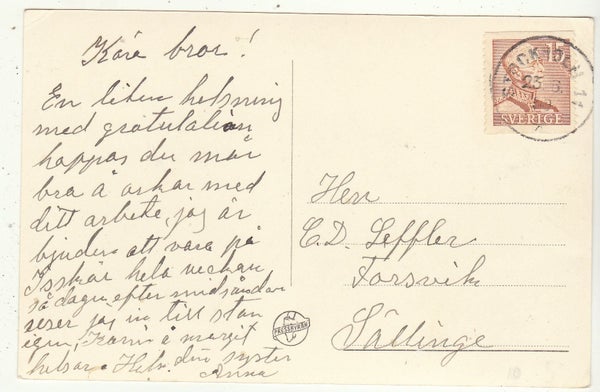 Kära bror!
En liten helsning
med gratulation
hoppas du mår
bra å orkar med
ditt arbete, jag är
bjuden att vara på
hela veckan
så dagen efter midsåndar
reser jag in till stan
igen, Karin å margit
helsar. din syster
Anna
15
STOCKHOLM 11
23 6
SVERIGE
Herr
C.D. Leffler
Forsvik
Sällinge